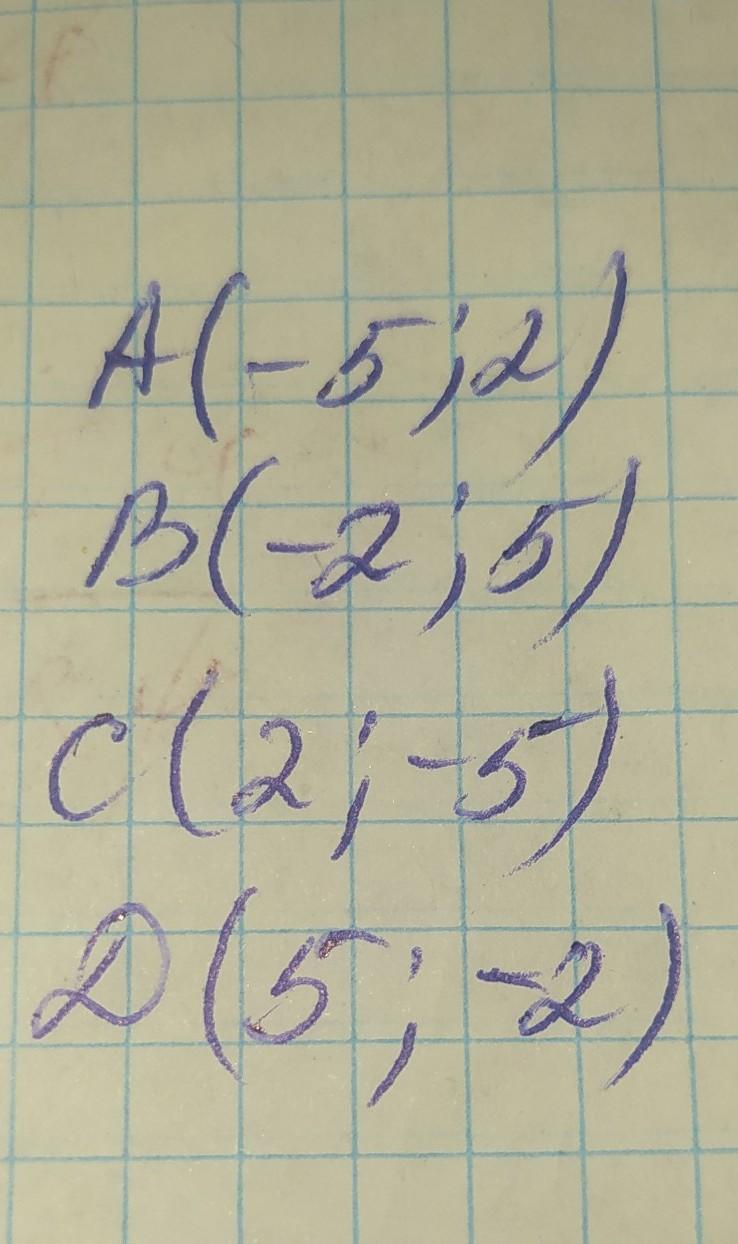 A(-5;2)
B(-2;5)
C(2;-5)
D(5;-2)